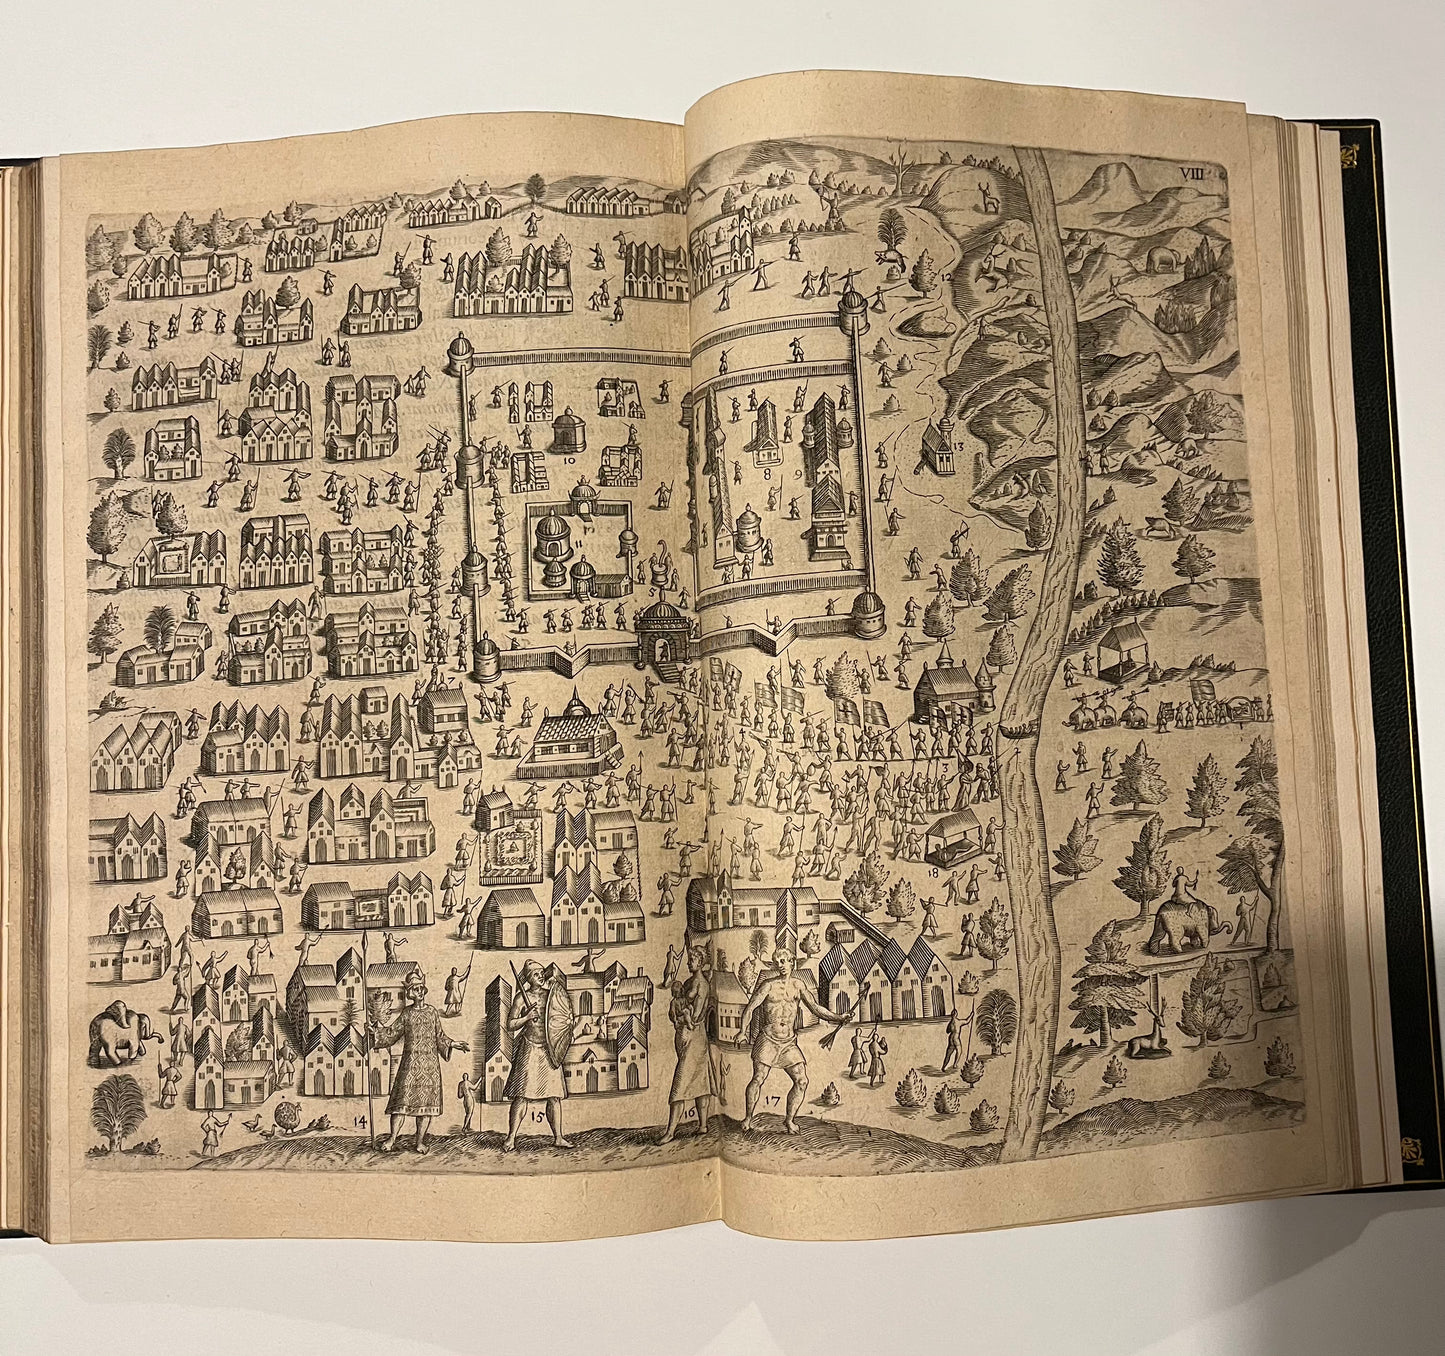 VIII
12
13
8
9
10
11
5
7
3
18
14
15
16
17